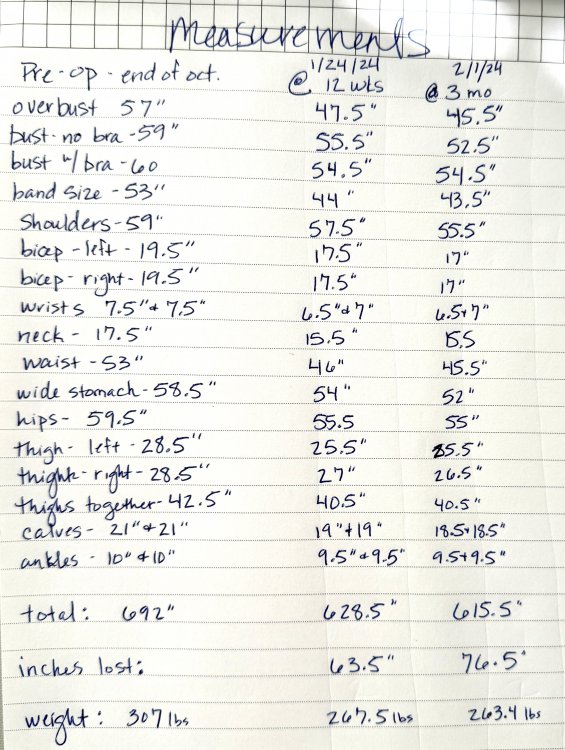 Measurements
Pre-op - end of oct. 1/24/24 @ 12 wks 2/1/24 @ 3 mo
overbust 57" 47.5" 45.5"
bust - no bra - 59" 55.5" 52.5"
bust w/ bra - 60 54.5" 54.5"
band size - 53" 44" 43.5"
Shoulders - 59" 57.5" 55.5"
bicep - left - 19.5" 17.5" 17"
bicep - right - 19.5" 17.5" 17"
wrists 7.5" & 7.5" 6.5" & 7" 6.5 & 7"
neck - 17.5" 15.5" 15.5
waist - 53" 46" 45.5"
wide stomach - 58.5" 54" 52"
hips - 59.5" 55.5 55"
thigh - left - 28.5" 25.5" 25.5"
thight - right - 28.5" 27" 26.5"
thighs together - 42.5" 40.5" 40.5"
calves - 21" & 21" 19" & 19" 18.5 & 18.5"
ankles - 10" & 10" 9.5" & 9.5" 9.5 & 9.5"
total: 692" 628.5" 615.5"
inches lost: 63.5" 76.5"
weight: 307 lbs 267.5 lbs 263.4 lbs